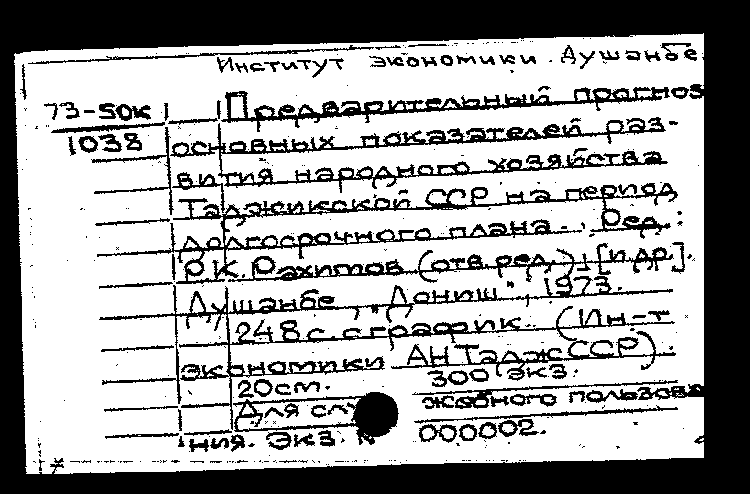 Институт экономики. Душанбе.
73-50к Предварительный прогноз
1038 основных показателей раз-
вития народного хозяйства
Таджикской ССР на период
долгосрочного плана. Ред.:
Р.К. Рахимов (отв. ред.) и [и др.].
Душанбе, "Дониш", 1973.
248 с. с график. (Ин-т
экономики АН Тадж ССР).
20см. 300 экз.
Для слу жебного пользова
ния. Экз. N 000002.